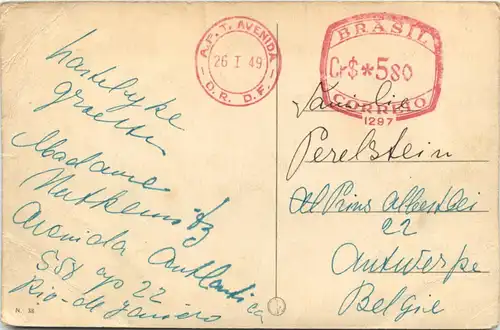 hartelijke
groeten
Madame
Avenida Atlantica
558 ap 22
Rio-de Janeiro
N. 38
A.P.T. AVENIDA
26 I 49
D.R. D.F.
BRASIL
Cr$ *580
CORREIO
1297
Familie
Perelstein
Prins Albertlei
22
Antwerpe
Belgie